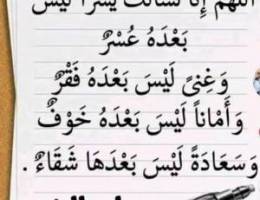 اللهم إنا نسألك يسراً ليس
بَعْدَهُ عُسْرٌ
وَغِنىً لَيْسَ بَعْدَهُ فَقْرٌ
وَأَمْاناً لَيْسَ بَعْدَهُ خَوْفٌ
وَسَعَادَةً لَيْسَ بَعْدَهَا شَقَاءٌ .